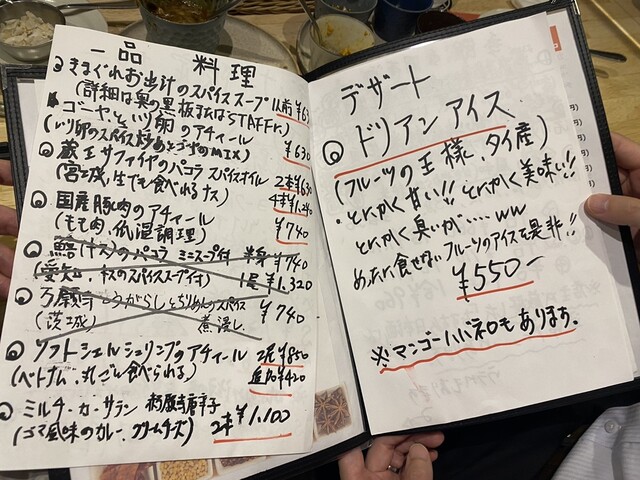 一品 料理
きまぐれお出汁のスパイススープ 1人前 ¥630
(詳細は奥の黒板またはSTAFFに)
ゴーヤといり卵のアチャール
(いり卵のスパイス炒めとゴーヤのMIX) ¥630
蔵王サファイヤのパコラ スパイスオイル
(宮城、生でも食べれるナス) 2本¥630
4本¥1,240
国産豚肉のアチャール
(もも肉、低温調理) ¥740
鱚(キス)のパコラ ミニスープ付 半身¥740
(愛知、キスのスパイススープ付) 1尾¥1,320
万願寺とうがらしとちりめんスパイス
(茨城) 煮浸し ¥740
ソフトシェルシュリンプのアチャール 2尾¥850
(ベトナム、丸ごと食べられる) 追加¥420
ミルチ・カ・サラン
(ゴマ風味のカレー、クリームチーズ) 2本¥1,100
デザート
ドリアンアイス
(フルーツの王様、タイ産)
・とにかく甘い!! とにかく美味い!!
とにかく臭いが....ww
めったに食せないフルーツのアイスを是非!!
¥550-
※マンゴーハバネロもあります。